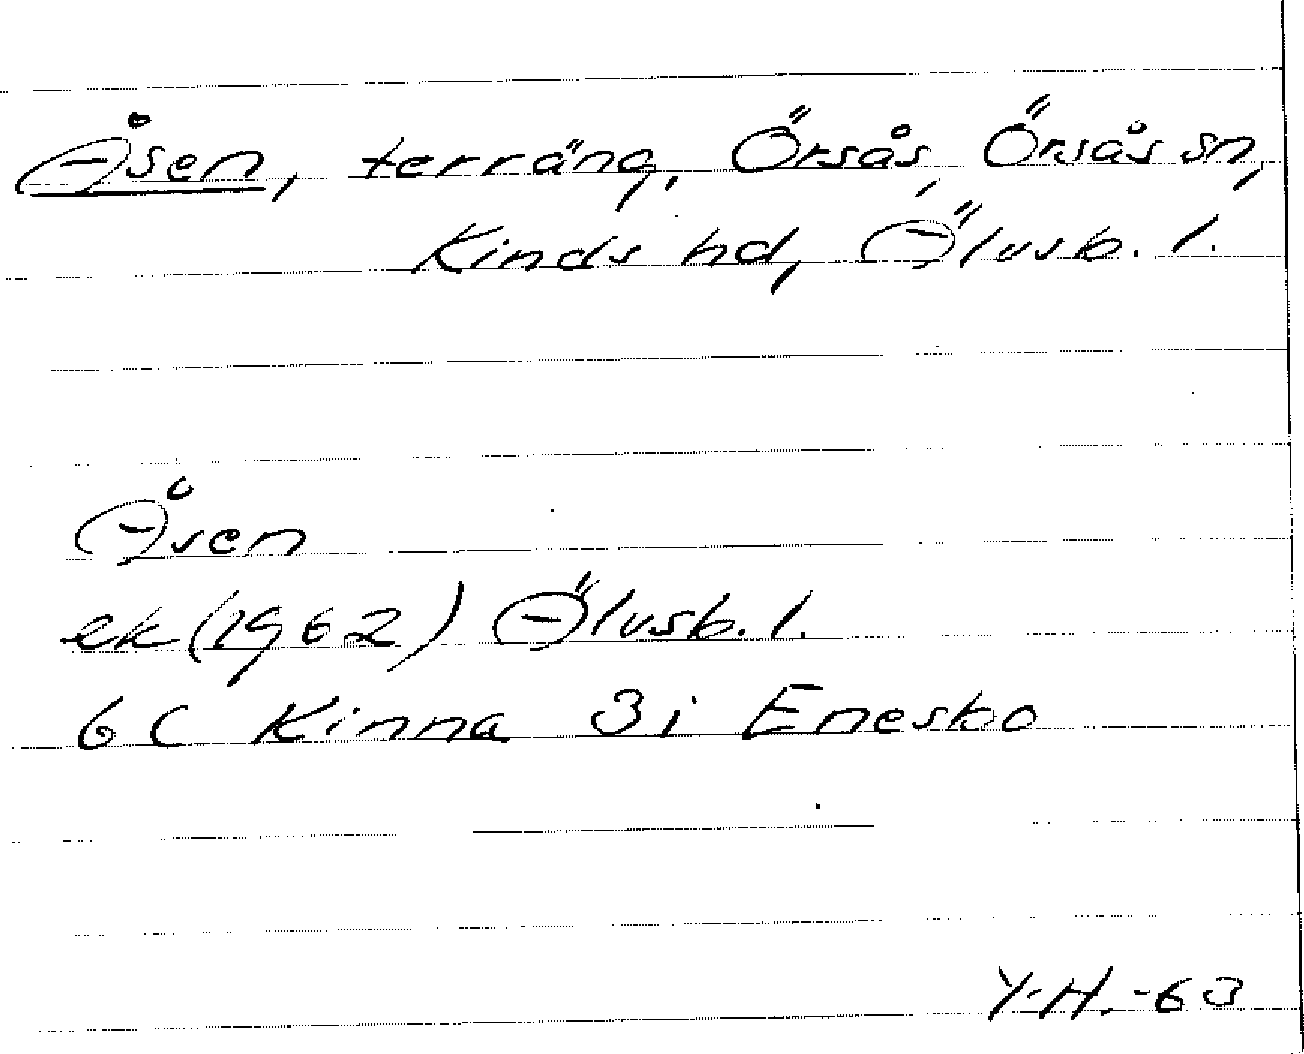 Åsen, terräng, Örsås, Örsås sn,
Kinds hd, Älvsb. l.
Åsen
ek (1962) Älvsb. l.
6C Kinna 3i Enesbo
Y.H. -63